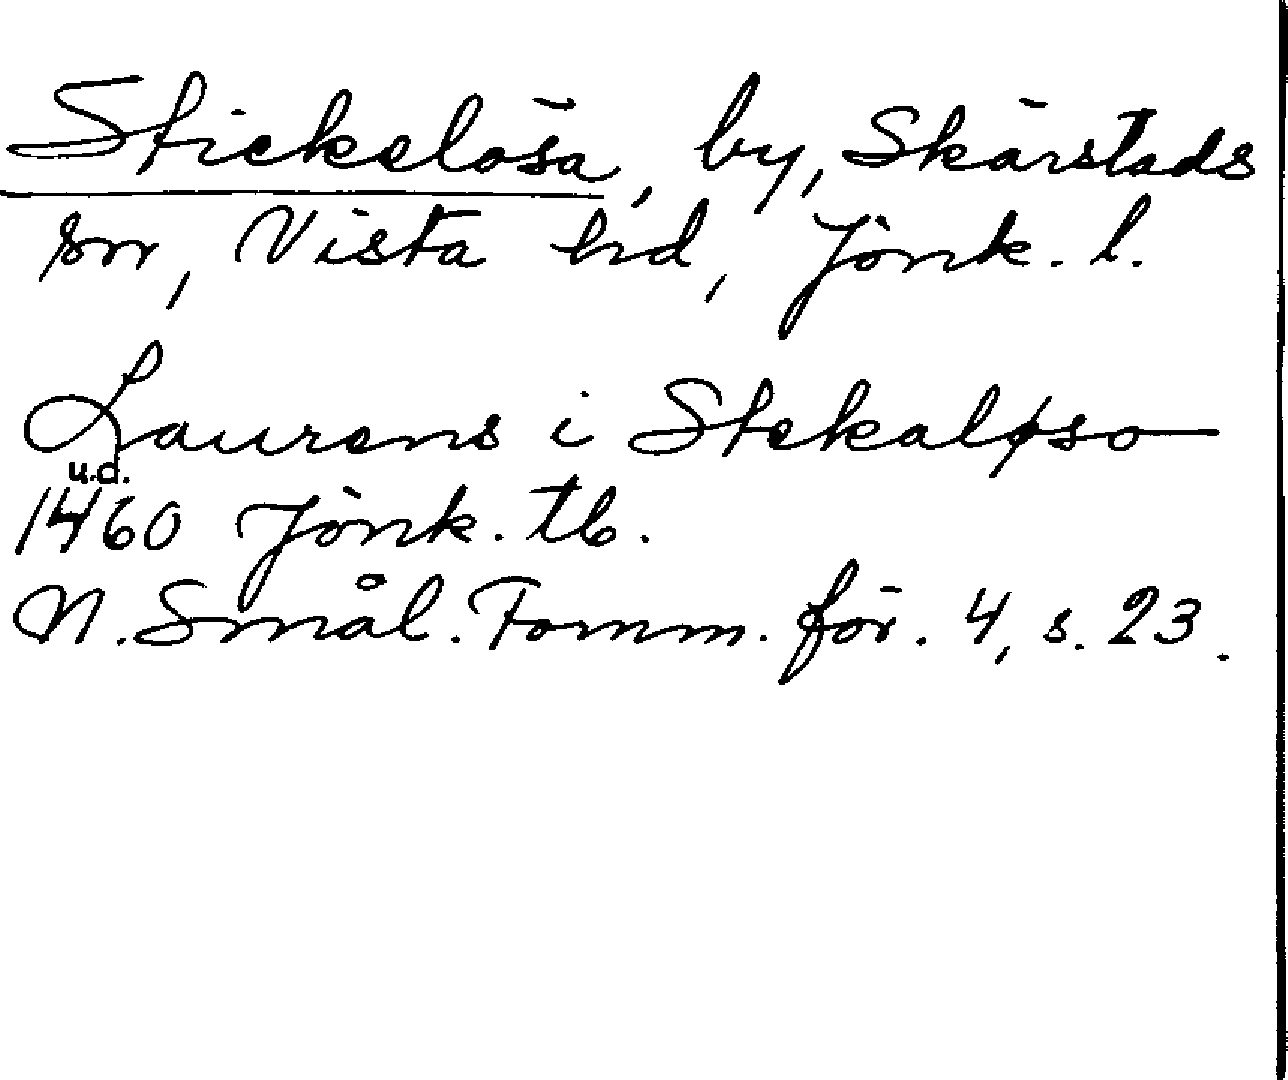 Stickelösa, by, Skärstads
sn, Vista hd, Jönk. l.
Laurens i Stekaløso
u.d.
1460 Jönk. tb.
N. Smål. Fornm. för. 4, s. 23.